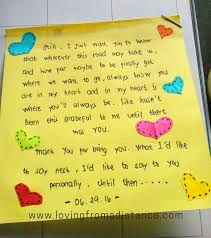 , I just want you to know
that wherever this road may take us,
and how far maybe to be finally get
where we want to go, always know you
are in my heart and in my heart is
where you'll always be. Life hasn't
been this grateful to me until there
was you.
Thank you for being you. What I'd like
to say next, I'd like to say to you
personally, until then .....
- 06.29.16 -
www.lovingfromadistance.com